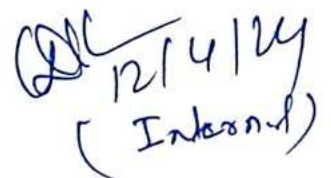 12/4/24
(Internal)